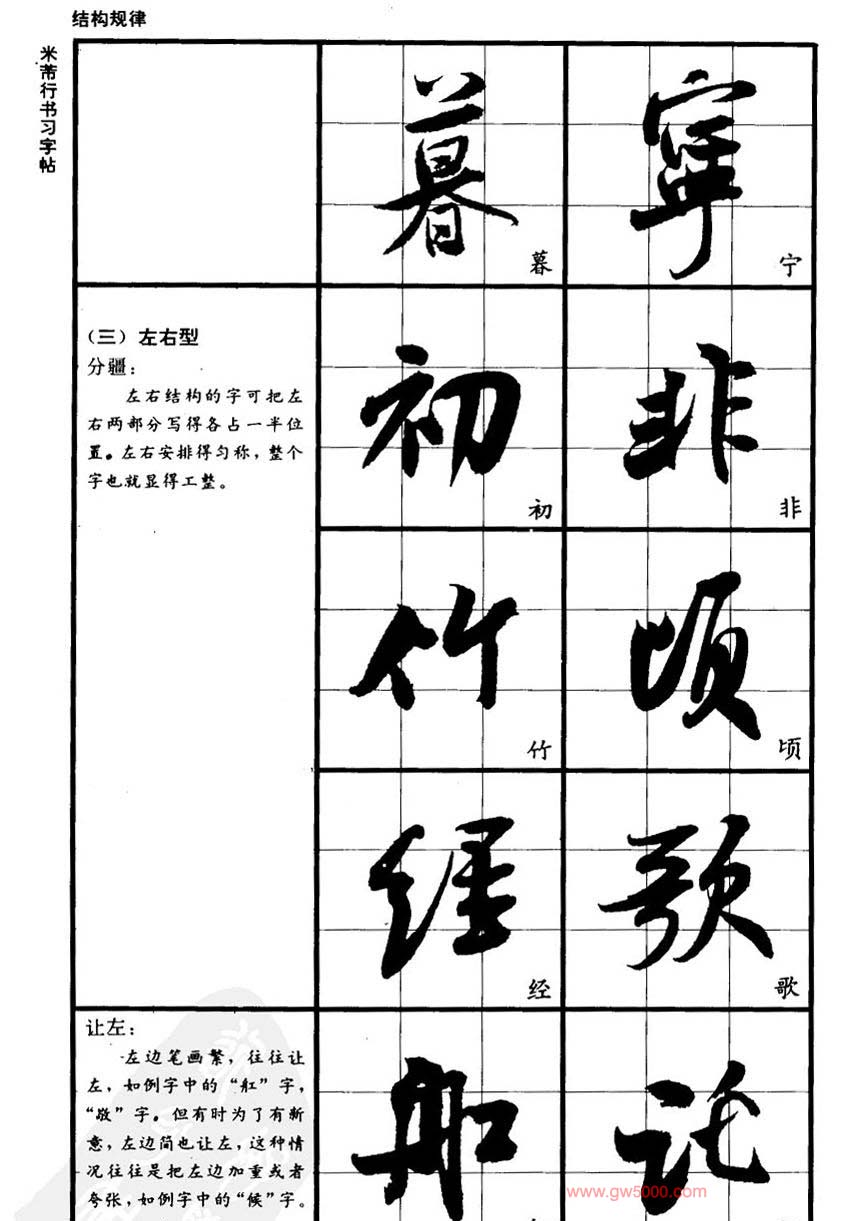 结构规律
米芾行书习字帖
暮 寧
暮 宁
（三）左右型
分疆：
左右结构的字可把左
右两部分写得各占一半位
置。左右安排得匀称，整个
字也就显得工整。
初 非
初 非
竹 頃
竹 顷
經 歌
经 歌
让左：
左边笔画繁，往往让
左，如例字中的“舡”字，
“敬”字。但有时为了有新
意，左边简也让左，这种情
况往往是把左边加重或者
夸张，如例字中的“候”字。
舡 託
www.gw5000.com